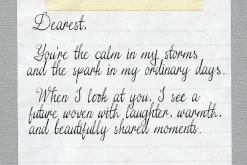 Dearest,
You're the calm in my storms
and the spark in my ordinary days.
When I look at you, I see a
future woven with laughter, warmth,
and beautifully shared moments.